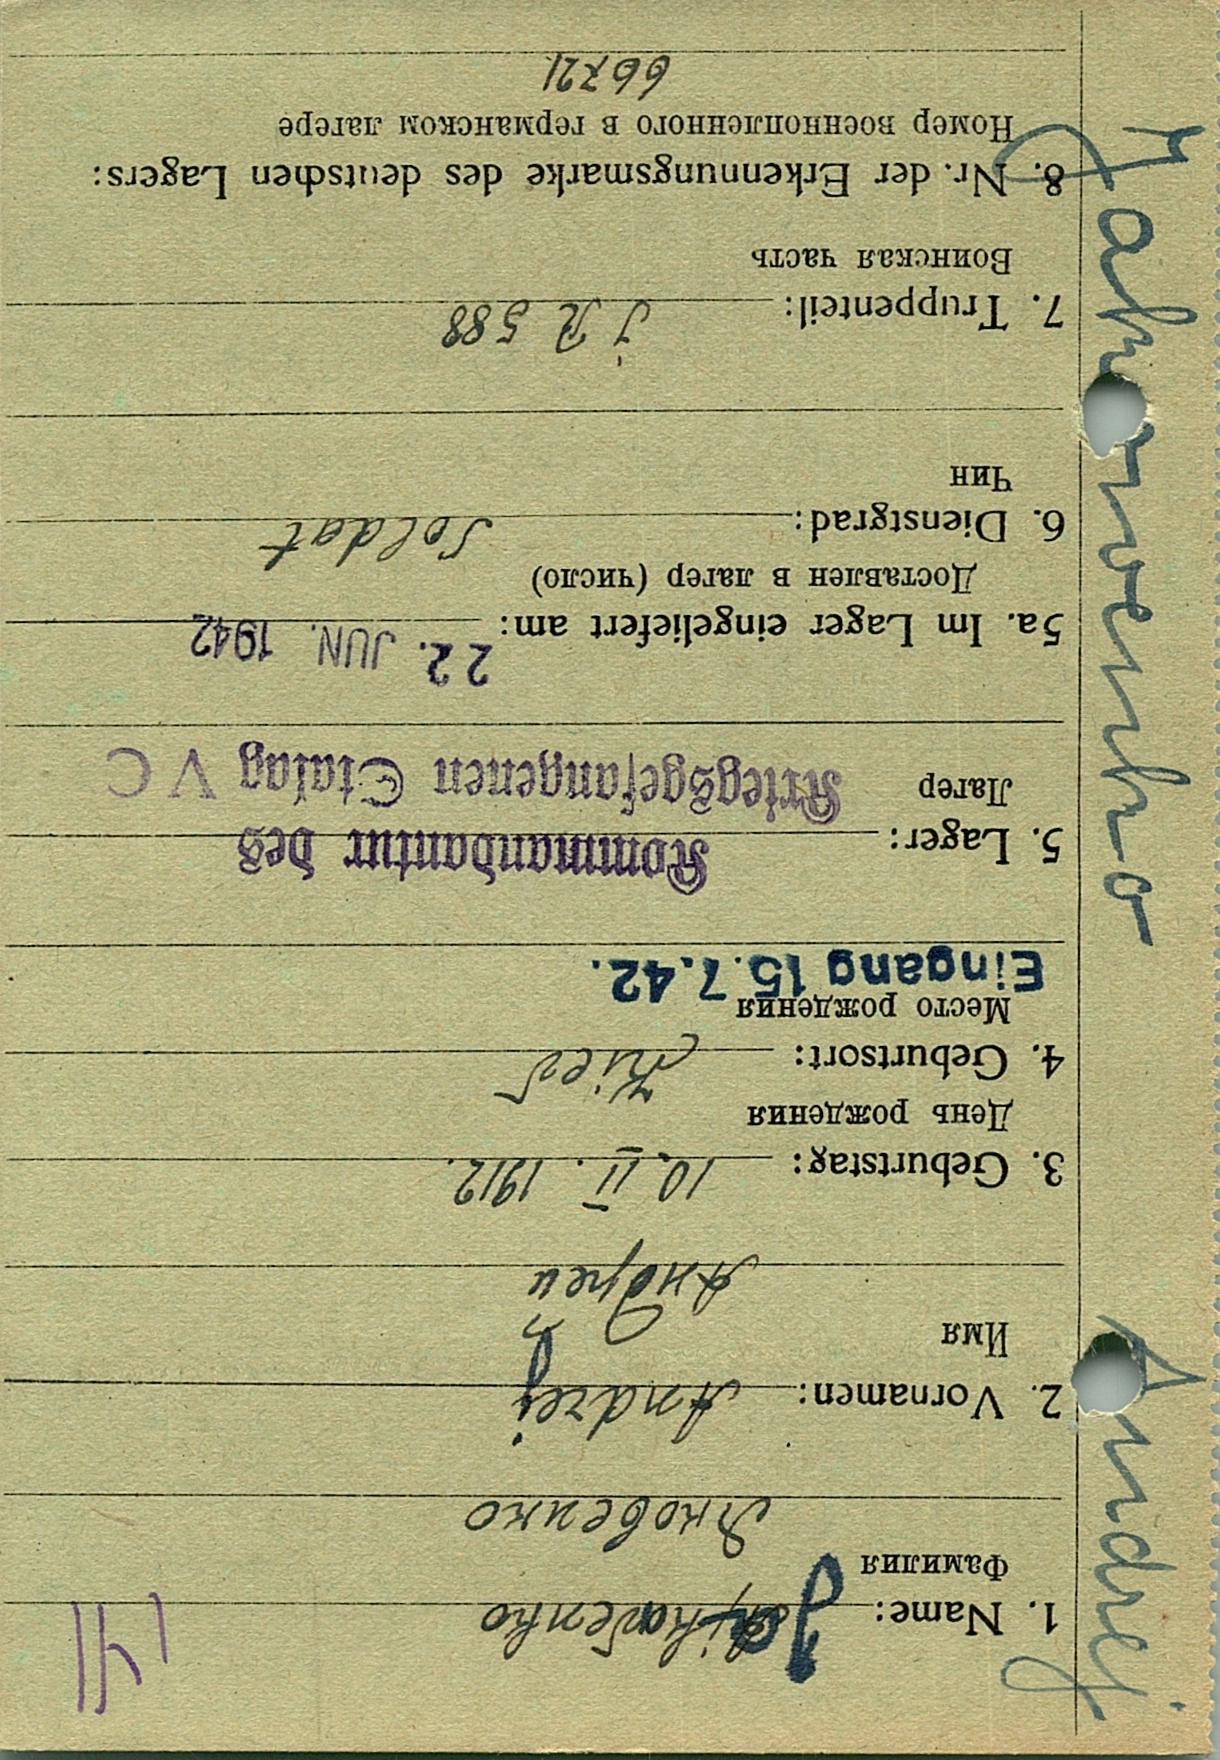 Jakowenko Andrej
1. Name: Jakowenko
Фамилия
Яковенко
2. Vornamen: Andrej
Имя
Андрей
3. Geburtstag: 10. II. 1912.
День рождения
4. Geburtsort: Kiew
Место рождения
Eingang 15.7.42.
5. Lager: Kommandantur des
Лагер Kriegsgefangenen Stalag V C
5a. Im Lager eingeliefert am: 22. JUN. 1942
Доставлен в лагер (число)
6. Dienstgrad: Soldat
Чин
7. Truppenteil: J R 588
Воинская часть
8. Nr. der Erkennungsmarke des deutschen Lagers:
Номер военнопленного в германском лагере
66721